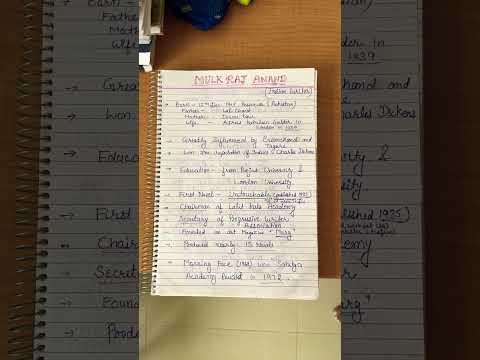 MULK RAJ ANAND
(Indian Writer)
→ Born - 12th Dec 1905 Peshawar (Pakistan)
Father - Lal Chand
Mother - Ishwar Kaur
Wife - Actress Kathleen Gelder in
London in 1939
→ Greatly Influenced by Premchand and
Tagore
→ Won the reputation of India's Charles Dickens
→ Education - from Punjab University &
London University.
→ First Novel - Untouchable (published 1935)
→ Chairman of Lalit Kala Academy
→ Secretary of Progressive Writer
Association
→ Founded an art magazine "Marg"
→ Produced nearly 15 Novels
→ Morning Face (1968) won Sahitya
Academy Award in 1972.